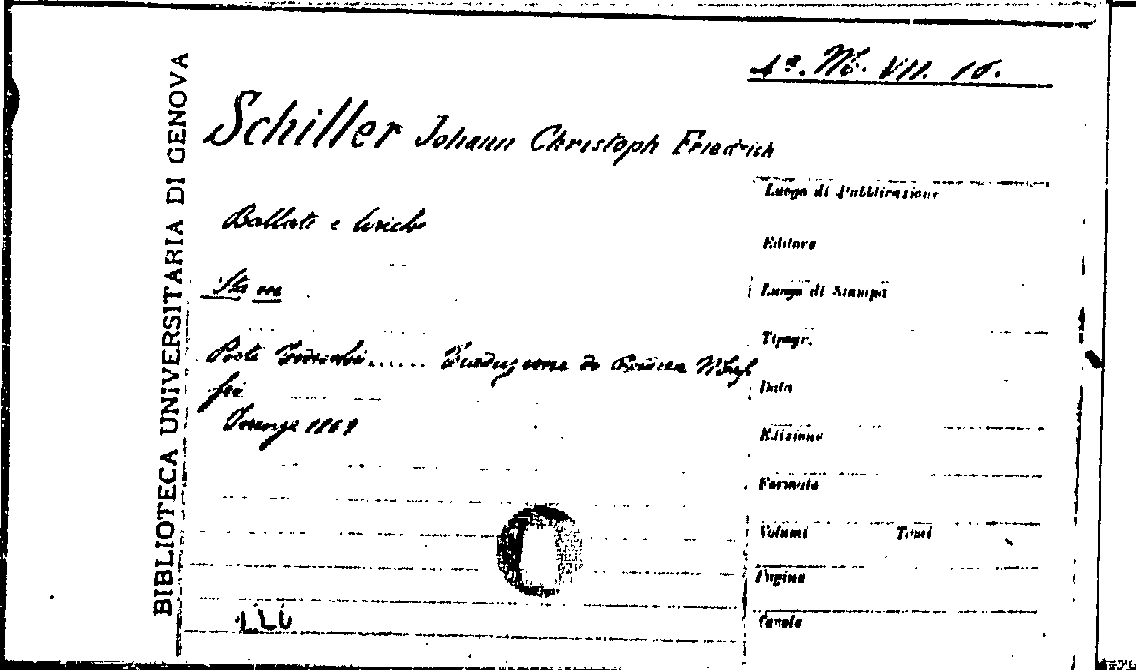 BIBLIOTECA UNIVERSITARIA DI GENOVA
VII. 16.
Schiller Johann Christoph Friedrich
Ballate e liriche
Sta in
Poeti Tedeschi...... Traduzione di
Firenze 1869
Luogo di Pubblicazione
Editore
Luogo di Stampa
Tipogr.
Data
Edizione
Formato
Volumi Tomi
Pagine
Tavole